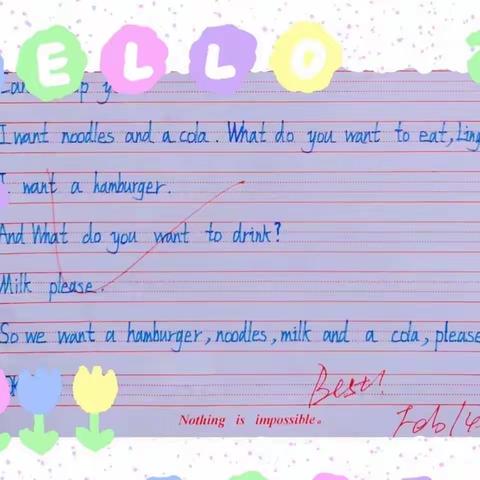 ELLO
I want noodles and a cola. What do you want to eat, Ling
I want a hamburger.
And What do you want to drink?
Milk please.
So we want a hamburger, noodles, milk and a cola, please
Best!
Nothing is impossible。